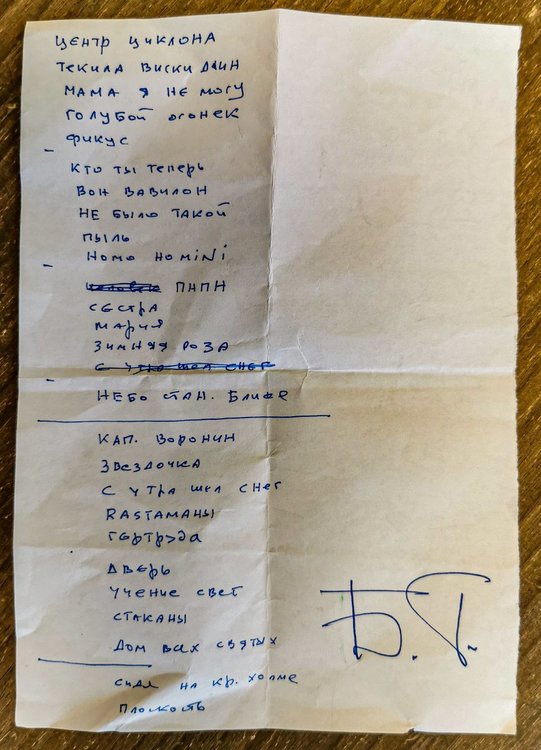 ЦЕНТР ЦИКЛОНА
ТЕКИЛА ВИСКИ ДЖИН
МАМА Я НЕ МОГУ
ГОЛУБОЙ ОГОНЕК
ФИКУС
КТО ТЫ ТЕПЕРЬ
ВОН ВАВИЛОН
НЕ БЫЛО ТАКОЙ
ПЫЛЬ
HOMO HOMINI
ПНПН
СЕСТРА
МАРИЯ
ЗИМНЯЯ РОЗА
С УТРА ШЕЛ СНЕГ
НЕБО СТАН. БЛИЖЕ
КАП. ВОРОНИН
ЗВЕЗДОЧКА
С УТРА ШЕЛ СНЕГ
RASTAМАНЫ
ГЕРТРУДА
ДВЕРЬ
УЧЕНИЕ СВЕТ
СТАКАНЫ
ДОМ ВСЕХ СВЯТЫХ
Б.Г.
СИДЯ НА КР. ХОЛМЕ
ПЛОСКОСТЬ